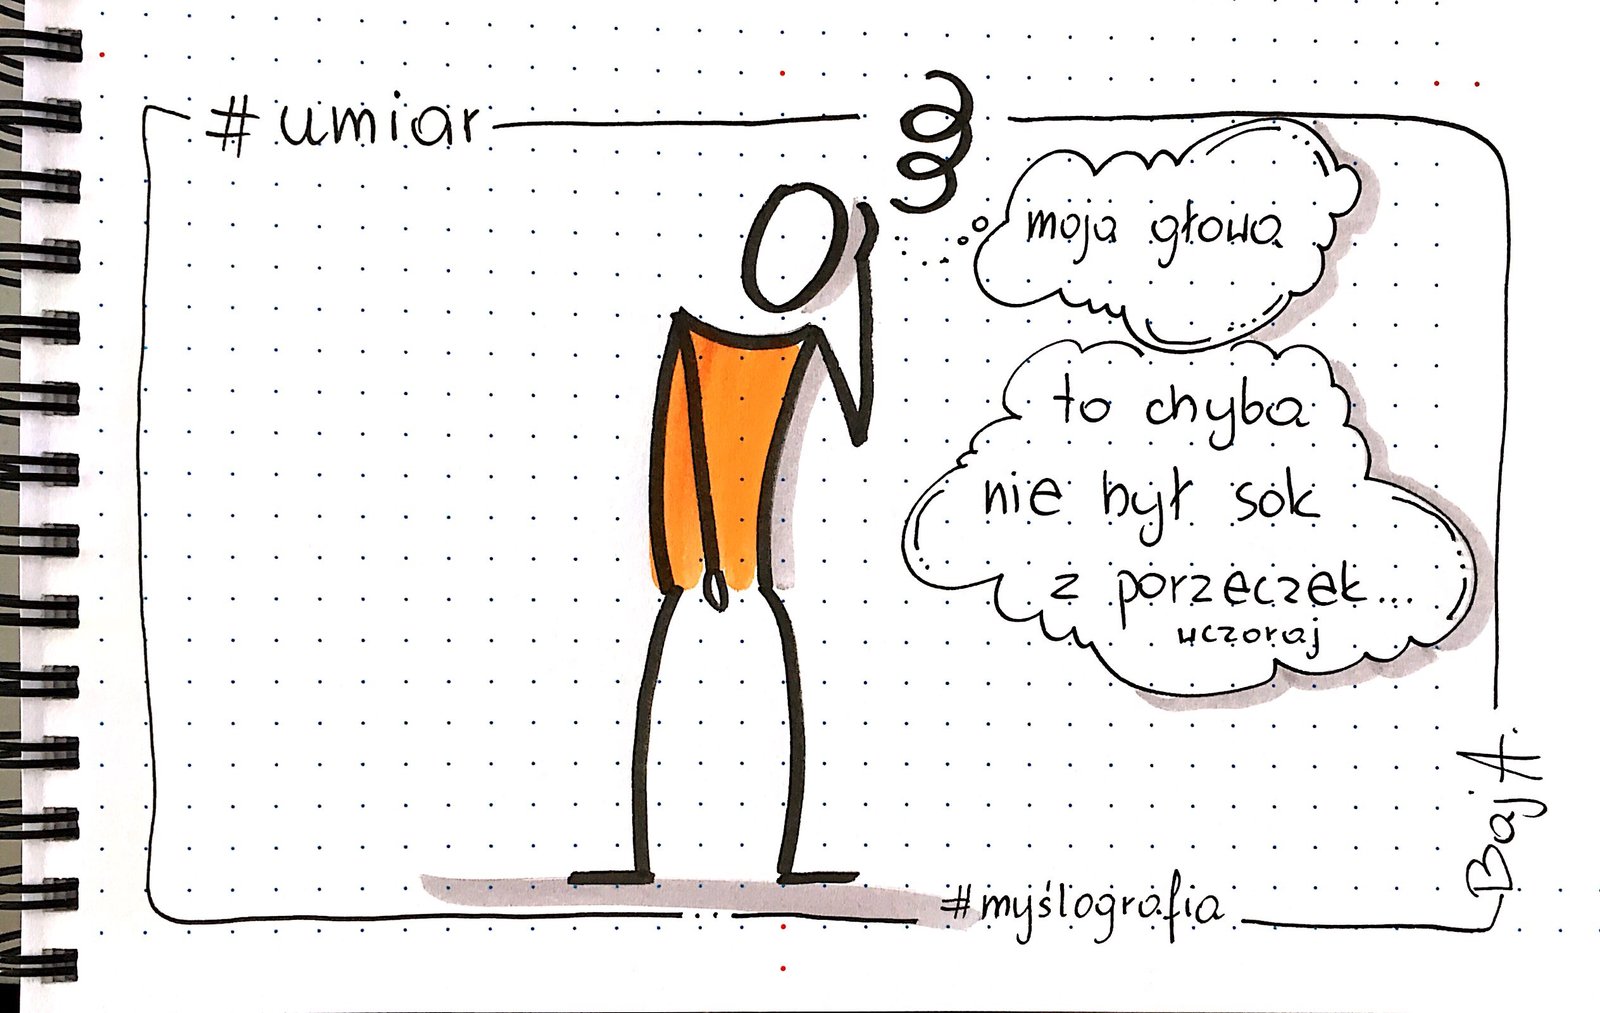 #umiar
moja głowa
to chyba
nie był sok
z porzeczek...
wczoraj
#myślografia
Baj A.